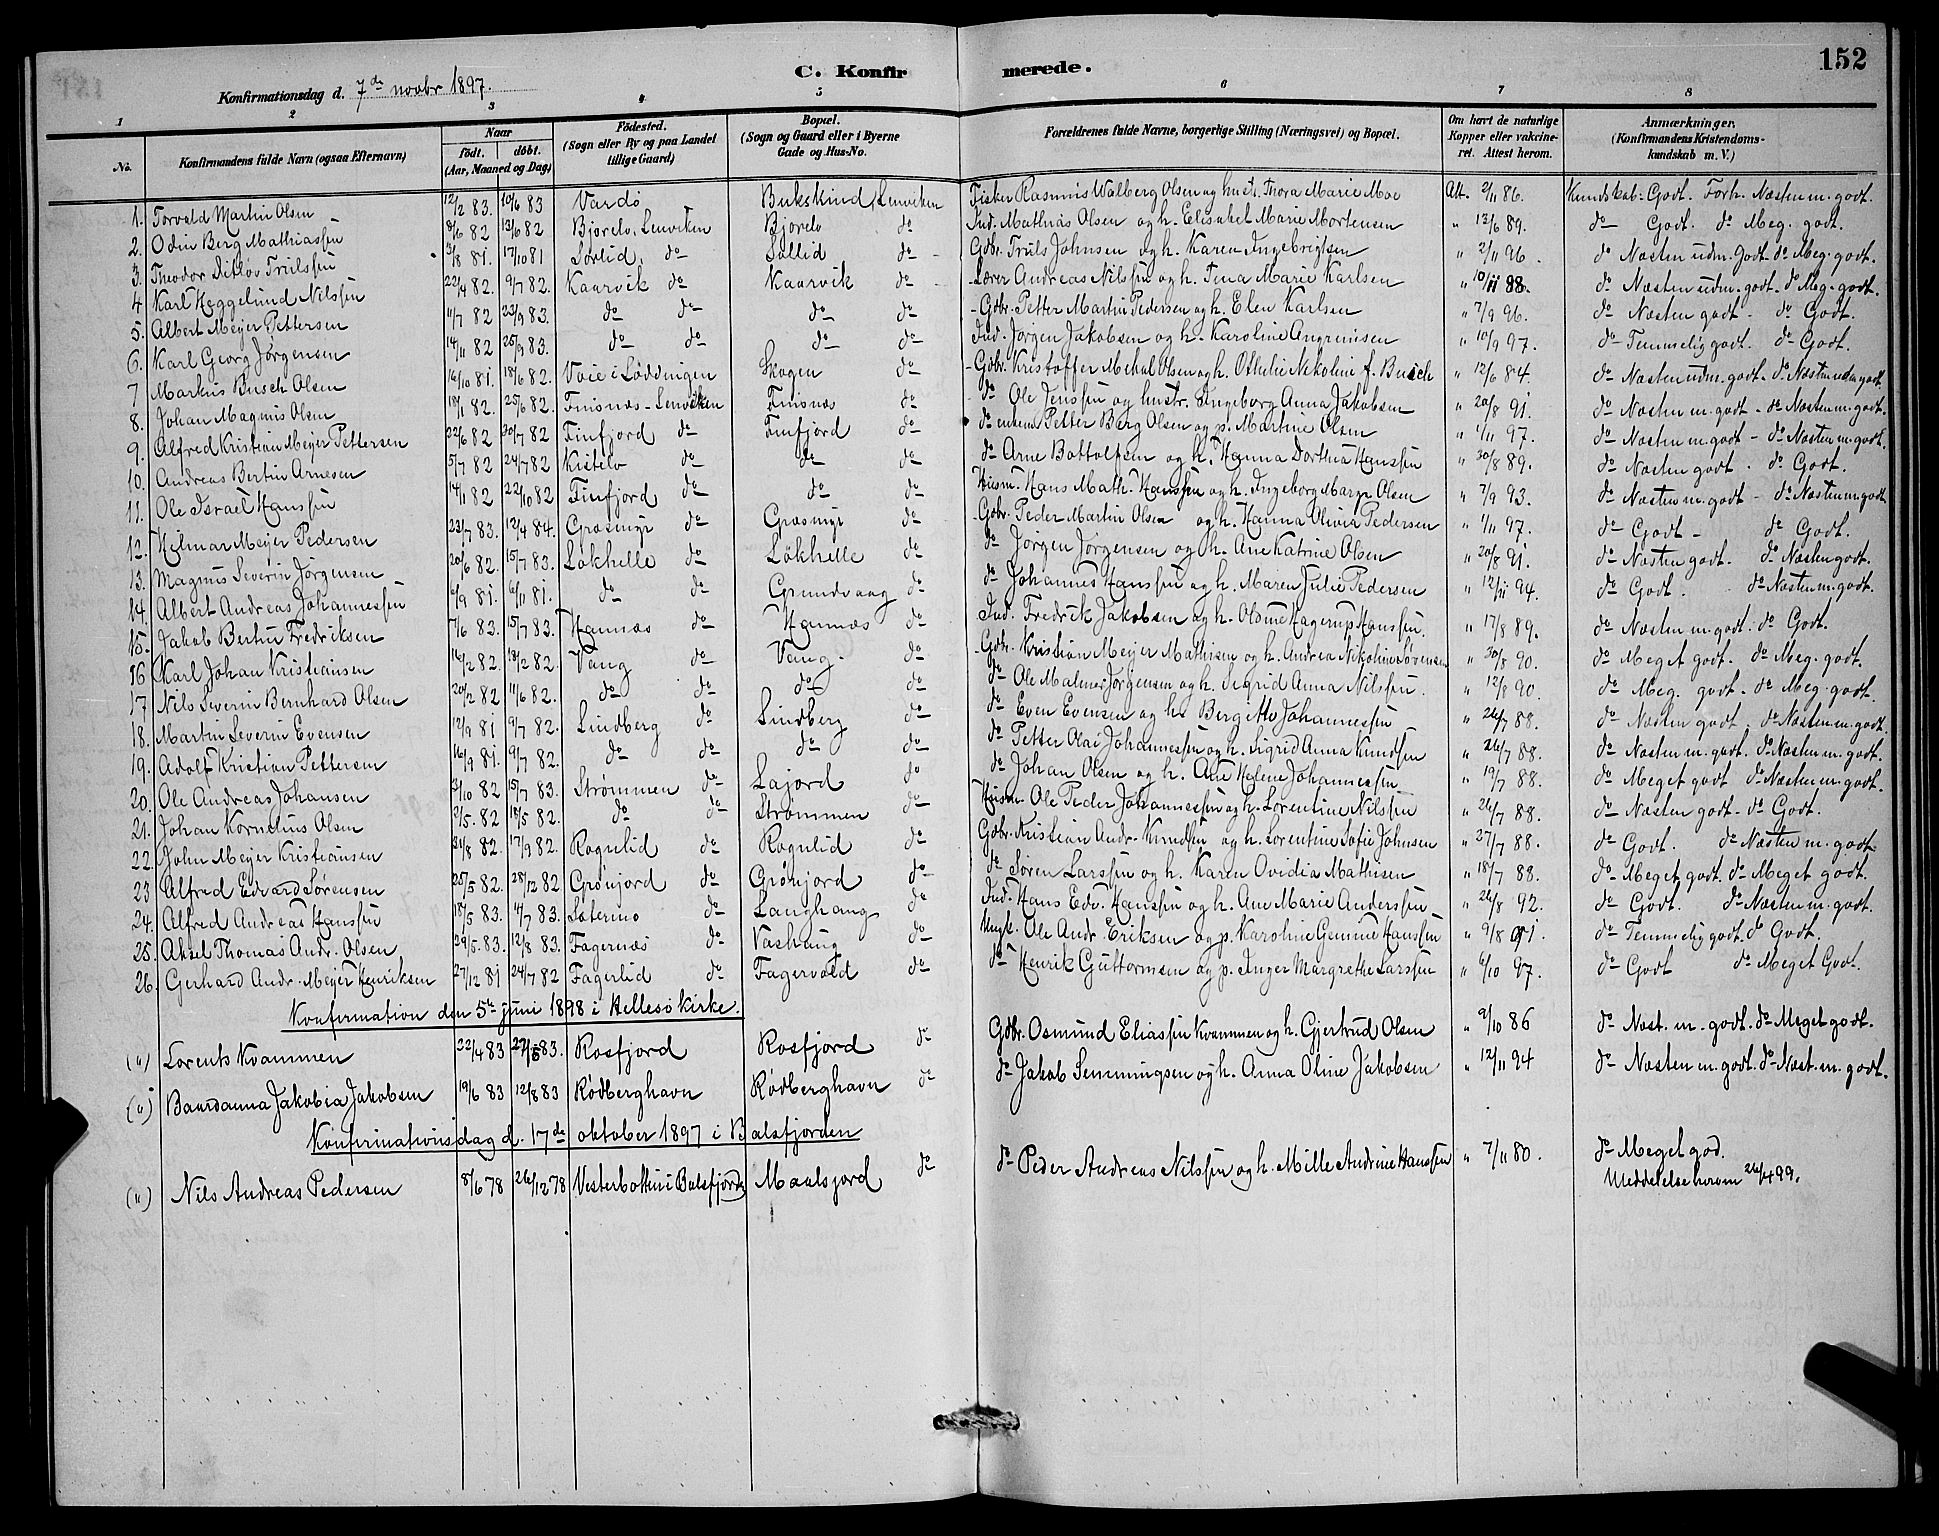 152
C. Konfirmerede.
Konfirmationsdag d. 7de novbr 1897.
1 2 3 4 5 6 7 8
No. Konfirmandens fulde Navn (ogsaa Efternavn) Naar født. døbt. (Aar, Maaned og Dag) Fødested. (Sogn eller By og paa Landet tillige Gaard) Bopæl. (Sogn og Gaard eller i Byerne Gade og Hus-No. Forældrenes fulde Navne, borgerlige Stilling (Næringsvei) og Bopæl. Om havt de naturlige Kopper eller vakcineret. Attest herom. Anmærkninger. (Konfirmandens Kristendomskundskab m. V.)
1. Torvald Martin Olsen 12/2 83. 10/6 83 Vardø Bukskind, Lenviken Fisker Rasmus Walberg Olsen og hustr. Thora Marie Moe Att. 2/11 86. Kundskab: Godt. Forh. Næsten m. godt.
2. Odin Berg Mathiassen 8/6 82 13/6 82 Bjorelv, Lenviken Bjorelv do Ind. Mathias Olsen og h. Elisabet Marie Mortensen " 13/6 89. do Godt. do Meg. godt.
3. Theodor Ditløv Trulssen 3/8 81. 17/10 81 Sørlid, do Sollid do Gdbr. Truls Johnsen og h. Karen Ingebrigtsen " 2/11 96. do Næsten udm. godt do Meg. godt.
4 Karl Heggelund Nilssen 22/4 82. 9/7 82. Kaarvik do Kaarvik do Lærer Andreas Nilssen og h. Tina Marie Karlsen " 10/11 88. do Næsten udm. godt. do Meg. godt.
5. Albert Meyer Pettersen 11/7 82 23/9 83. do do do do Gdbr. Petter Martin Pedersen og h. Elen Karlsen " 7/9 96. do Næsten godt - do Godt.
6. Karl Georg Jørgensen 14/11 82 25/9 83. do do do do Ind. Jørgen Jakobsen og h. Karoline Angrimsen " 10/9 97. do Temmelig godt. do Godt.
7 Markus Busch Olsen 16/10 81. 18/6 82. Voie i Løddingen Skogen do Gdbr. Kristoffer Mikal Olsen og h. Othelie Nikoline f. Busch " 12/6 84. do Næsten udm. godt. do Næsten udm godt.
8. Johan Magnus Olsen 18/1 82. 25/6 82. Finsnæs - Lenviken Finsnæs do do Ole Jenssen og hustr. Ingeborg Anna Jakobsen " 20/8 91. do Næsten m. godt - do Næsten m. godt.
9. Alfred Kristian Meyer Pettersen 22/6 82 30/7 82 Finfjord do Finfjord do do enkem. Petter Berg Olsen og p. Martine Olsen " 1/11 97. do Næsten m. godt - do Næsten m. godt.
10. Andreas Bertin Arnesen 5/7 82 24/7 82 Kistelv do do do do Arne Bottolfsen og h. Hanna Dorthea Hanssen " 30/8 89. do Næsten godt. do Godt.
11. Ole Israel Hanssen 14/11 82 22/10 82 Finfjord do do do Husm. Hans Math. Hanssen og h. Ingeborg Margr. Olsen " 7/9 93. do Næsten m. godt - do Næsten m. godt
12. Hilmar Meyer Pedersen 23/7 83. 12/4 84. Græsmyr do Græsmyr do Gdbr. Peder Martin Olsen og h. Hanna Olivia Pedersen " 1/11 97. do Godt - do Godt.
13. Magnus Severin Jørgensen 20/6 82. 15/7 83. Løkhelle do Løkhelle do do Jørgen Jørgensen og h. Ane Katrine Olsen " 20/8 91. do Næsten godt. do Næsten godt.
14. Albert Andreas Johannessen 6/9 81. 6/11 81. do do Grundvaag do do Johannes Hanssen og h. Maren Julie Pedersen " 12/11 94. do Godt. do Næsten m. godt.
15. Jakob Bertin Fredriksen 7/6 83. 15/7 83. Hannæs do Hannæs do Ind. Fredrik Jakobsen og h. Oline Hagerup Hanssen. " 17/8 89. do Næsten m. godt. do Godt.
16 Karl Johan Kristiansen 16/2 82. 18/2 82. Vang do Vang. do Gdbr. Kristian Meyer Mathisen og h. Andrea Nikoline Sørensen " 30/8 90. do Meget godt. do Meg. godt.
17 Nils Severin Bernhard Olsen 20/2 82 11/6 82. do do do do do Ole Malmer Jørgensen og h. Sigrid Anna Nilssen. " 12/8 90. do Meg. godt. do Meg. godt.
18. Martin Severin Evensen 12/9 81 9/7 82. Lindberg do Lindberg do do Even Evensen og h. Bergitte Johannessen " 26/7 88. do Næsten godt. do Næsten m. godt.
19. Adolf Kristian Pettersen 16/9 81. 9/7 82. do do do do do Petter Olai Johannessen og h. Sigrid Anna Knudsen " 26/7 88. do Næsten m. godt. do Næsten m. godt.
20. Ole Andreas Johansen 31/10 82 15/7 83. Strømmen do Lajord do do Johan Olsen og h. Ane Helene Johannessen " 19/7 88. do Meget godt do Næsten m. godt.
21. Johan Kornelius Olsen 2/5. 82 18/5 82. do do Strømmen do Husm. Ole Peder Johannessen og h. Lorentine Nilssen " 26/7 88. do Næsten godt. do Godt.
22. John Meyer Kristiansen 21/8 82. 17/9 82. Rognlid do Rognlid do Gdbr. Kristian Andr. Knudsen og h. Lorentine Sofie Johnsen " 27/7 88. do Godt. do Næsten m. godt.
23 Alfred Edvard Sørensen 25/5 82. 28/12 82 Grønjord do Grønjord do do Søren Larssen og h. Karen Ovidia Mathisen " 18/7 88. do Meget godt. do Meget godt.
24. Alfred Andreas Hanssen 18/5 83. 4/7 83. do Langhaug do Ind. Hans Edv. Hanssen og h. Ane Marie Anderssen " 26/8 92. do Godt. do Næsten m. godt.
25. Aksel Thomas Andr. Olsen 29/5. 83. 12/8 83. Fagernæs do Vashaug do Ungk. Ole Andr. Eriksen og p. Karoline Gemine Hanssen " 9/8 91. do Temmelig godt. do Godt.
26. Gerhard Andr. Meyer Henriksen 27/12 81 24/7 82 Fagerlid do Fagervold do do Henrik Guttormsen og p. Inger Margrethe Larssen " 6/10 97. do Godt do Meget Godt.
Konfirmation den 5te juni 1898 i Hellesø kirke.
(") Lorents Kvammen 22/4 83 27/5 83. Rosfjord Rosfjord do Gdbr. Osmund Eliassen Kvammen og h. Gjertrud Olsen " 9/10 86 do Næst. m. godt. do Meget godt.
(") Baardanna Jakobia Jakobsen 19/6 83 12/8 83 Rødberghavn Rødberghavn do do Jakob Semmingsen og h. Anna Oline Jakobsen " 12/11 94 do Næsten m. godt. do Næst. m. godt.
Konfirmationsdag d. 17de oktober 1897 i Balsfjorden
(") Nils Andreas Pedersen 8/6 78 26/12 78 Vesterbotten i Balsfjord Maalsjord do do Peder Andreas Nilssen og h. Mille Andrine Hanssen " 7/11 80. do Meget god.
Meddelelse herom 26/4 99.